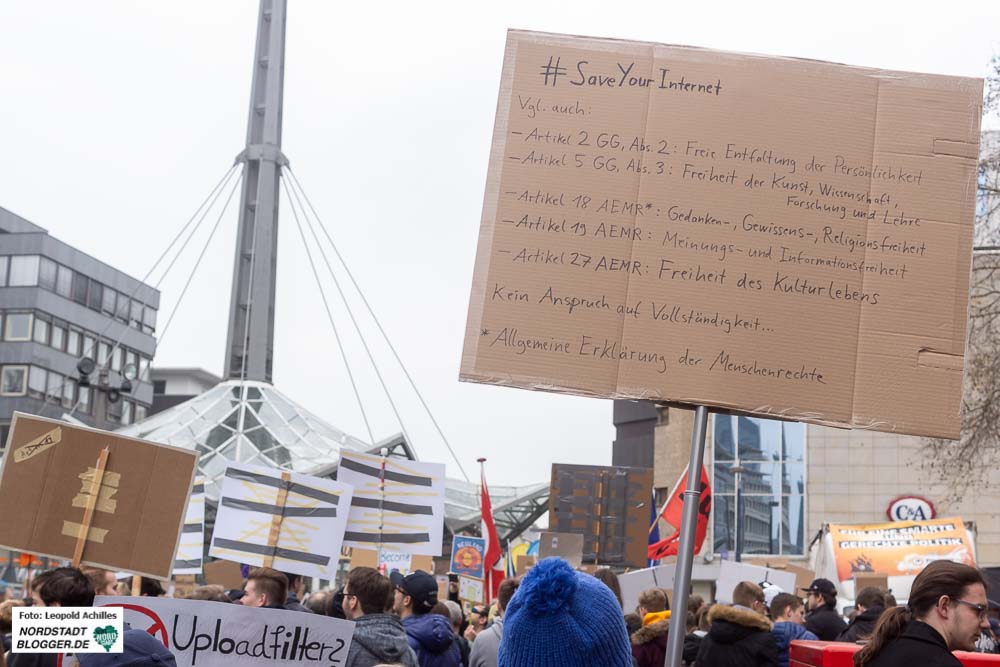 #SaveYourInternet
Vgl. auch:
– Artikel 2 GG, Abs. 2: Freie Entfaltung der Persönlichkeit
– Artikel 5 GG, Abs. 3: Freiheit der Kunst, Wissenschaft,
Forschung und Lehre
– Artikel 18 AEMR*: Gedanken-, Gewissens-, Religionsfreiheit
– Artikel 19 AEMR: Meinungs- und Informationsfreiheit
– Artikel 27 AEMR: Freiheit des Kulturlebens
Kein Anspruch auf Vollständigkeit...
*Allgemeine Erklärung der Menschenrechte
C&A
FÜR EINE SMARTE
GERECHTE POLITIK
BECOME
Uploadfilter?
Foto: Leopold Achilles
NORDSTADT
BLOGGER.DE